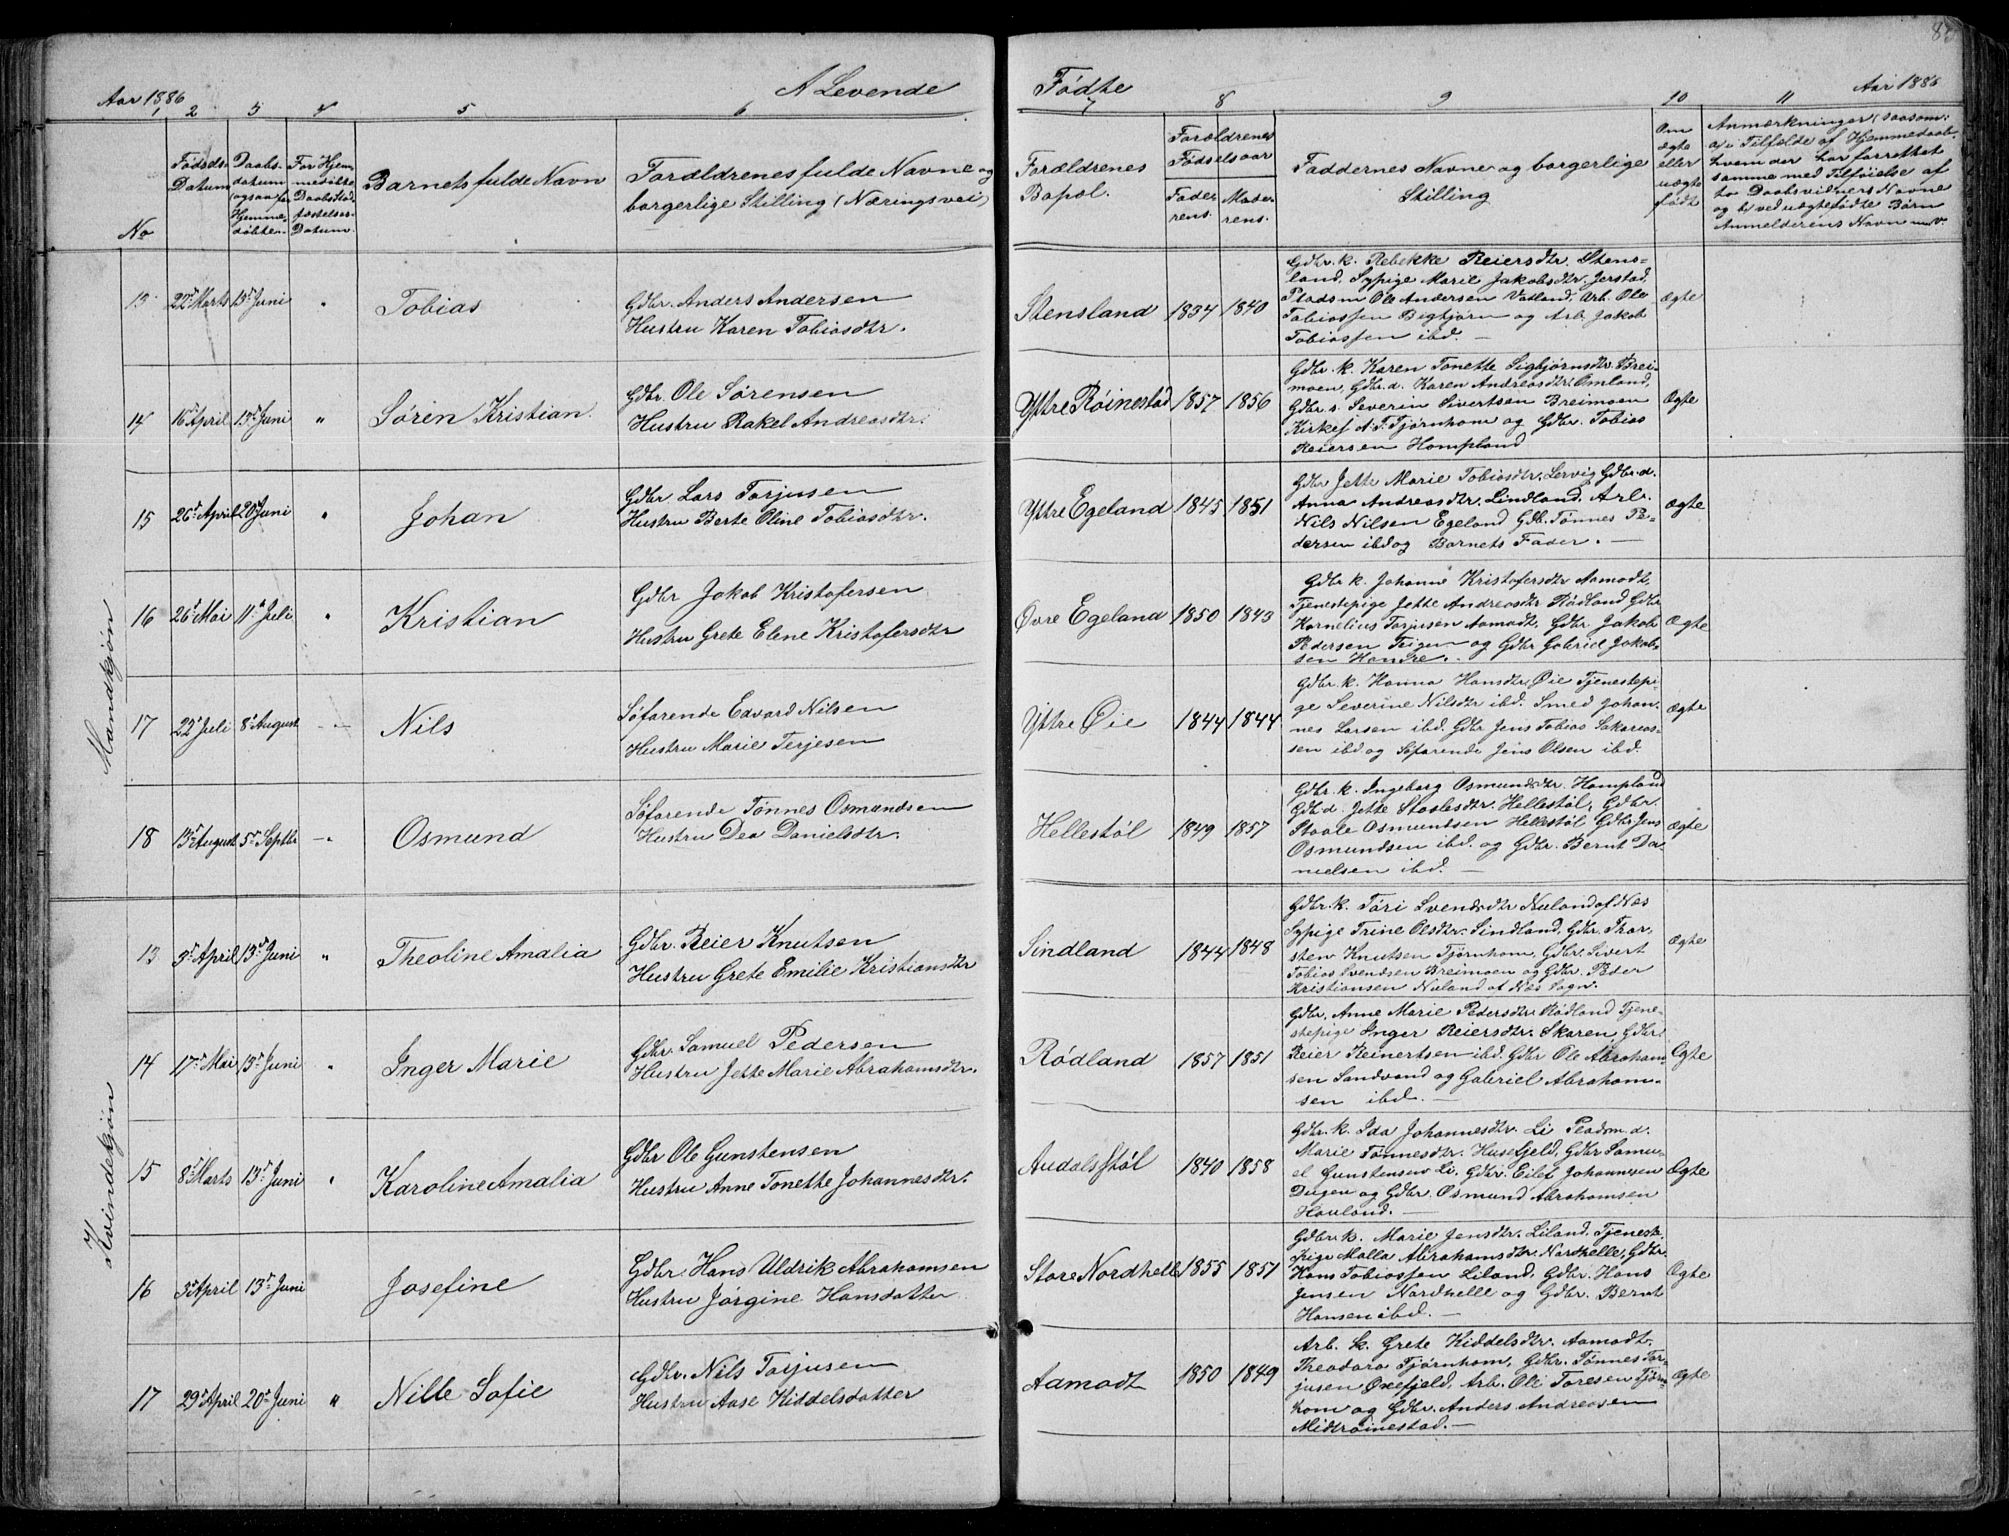 Aar 1886
A Levende
Fødte
Aar 1886
1 2 3 4 5 6 7 8 9 10 11
No
Fødsels-
Datum
Daabs-
datum
(ogsaa for
Hjemme-
døbte
For Hjem-
medøbte
Daabsstad-
fæstelses-
Datum
Barnets fulde Navn
Forældrenes fulde Navne og
borgerlige Stilling (Næringsvei)
Forældrenes
Bopæl.
Forældrenes
Fødselsaar
Fade-
rens.
Mode-
rens.
Faddernes Navne og borgerlige
Stilling
Om
ægte
eller
uægte
født
Anmærkninger, saasom:
a, i Tilfælde af Hjemmedaab,
hvem der har forrettet
samme med Tilføielse af
to Daabsvidners Navne
og b, ved uægtefødte Børn
Anmelderens Navn m.v.
Mandkjøn
13 22de Marts 13de Juni " Tobias
Gdbr. Anders Andersen
Hustru Karen Tobiasdtr.
Stensland 1834 1840
Gdbr. k. Rebekke Reiersdtr. Stens-
land, Sypige Marie Jakobsdtr. Jerstad,
Pladsm Ole Andersen Vatland, Arb. Ole
Tobiassen Bigtjørn og Arb. Jakob
Tobiassen ibd. —
Ægte
14 16de April 13de Juni " Søren Kristian
Gdbr. Ole Sørensen
Hustru Rakel Andreasdtr.
Yttre Røinestad 1857 1856
Gdbr. k. Karen Tonette Sigbjørnsdtr. Brei-
moen, Gdbr. d. Karen Andreasdtr. Omland,
Gdbr s. Severin Sivertsen Breimoen
Kirkes. A. T. Tjørnhom og Gdbr. Tobias
Reiersen Hompland
Ægte
15 26de April 20de Juni " Johan
Gdbr Lars Torjusen
Hustru Berte Oline Tobiasdtr.
Yttre Egeland 1845 1851
Gdbr Jette Marie Tobiasdtr. Lervig Gdbr. d.
Anna Andreasdtr. Lindland. Arb.
Nils Nilsen Egeland Gdb. Tønnes Pe-
dersen ibd og Barnets Fader. —
Ægte
16 26de Mai 11te Juli " Kristian
Gdbr Jakob Kristofersen
Hustru Grete Elene Kristofersdtr
Øvre Egeland 1850 1843
Gdbr k. Johanne Kristofersdtr Aamodt,
Tjenestepige Jette Andreasdtr Rødland Gdbr
Kornelius Torjusen Aamodt, Gdbr. Jakob
Pedersen og Gdbr Gabriel Jakob-
sen
Ægte
17 22de Juli 8de August — Nils
Søfarende Edvard Nilsen
Hustru Marie Terjesen
Yttre Øie 1844 1844
Gdbr. k. Hanna Hansdtr. Øie Tjenestepi-
ge Severine Nilsdtr ibd. Smed Johan-
nes Larsen ibd. Gdbr Jens Tobias Sakarias-
sen ibd og Søfarende Jens Olsen ibd.
Ægte
18 13de August 5te Septbr —" Osmund
Søfarende Tønnes Osmundsen
Hustru Dea Danielsdtr.
Hellestøl 1849 1857
Gdbr. k. Ingeborg Osmundsdtr. Hompland
Gdb. d. Jette Staalesdtr. Hellestøl, Gdbr.
Staale Osmundsen Hellestøl Gdbr Jens
Osmundsen ibd. og Gdbr. Bernt Da-
nielsen ibd. —
Ægte
Kvindekjøn
13 3de April 13de Juni " Theoline Amalia
Gdbr. Reier Knutsen
Hustru Grete Emilie Kristiansdtr
Sindland 1844 1848
Gdbr. k. Tøri Svendsdtr Nuland af Næs
Sypige Trine Olsdtr. Sindland, Gdbr. Thor-
sten Knutsen Tjørnhom, Gdbr. Sivert
Tobias Svendsen Breimoen og Gdbr. Peder
Kristiansen Nuland af Næs Sogn.
Ægte
14 17de Mai 13de Juni " Inger Marie
Gdbr. Samuel Pedersen
Hustru Jette Marie Abrahamsdtr.
Rødland 1857 1851
Gdbr. Anne Marie Pedersdtr. Rødland Tjene-
stepige Inger Reiersdtr. Skaren, Gdbr.
Reier Reinertsen ibd. Gdbr Ole Abraham-
sen Sandvand og Gabriel Abraham-
sen ibd. —
Ægte
15 8de Marts 13de Juni " Karoline Amalia
Gdbr Ole Gunstensen
Hustru Anne Tonette Johannesdtr.
Audalsstøl 1840 1858
Gdbr. k. Ida Johannesdtr. Li Pladsm. d.
Marie Tønnesdtr. Husefjeld, Gdbr Samu-
el Gunstensen Li, Gdbr. Eilef Johannesen
Dugen og Gdbr. Osmund Abrahamsen
Hauland. —
Ægte
16 3de April 13de Juni Josefine
Gdbr. Hans Uldrik Abrahamsen
Hustru Jørgine Hansdatter
Store Nordhelle 1855 1851
Gdbr. k. Marie Jensdtr. Liland. Tjeneste-
pige Malla Abrahamsdtr. Nordhelle, Gdbr.
Hans Tobiassen Liland, Gdbr. Hans
Jensen Nordhelle og Gdbr. Bernt
Hansen ibd. —
Ægte
17 29de April 20de Juni " Nille Sofie
Gdbr. Nils Torjusen
Hustru Aase Kiddelsdatter
Aamodt 1850 1849
Arb. k. Grete Kiddelsdtr. Aamodt.
Theodora Tjørnhom, Gdbr. Tønnes Tor-
jusen Oxefjeld, Arb. Ole Toresen Tjørn-
hom og Gdbr. Anders Andreasen
Midtrøinestad. —
Ægte